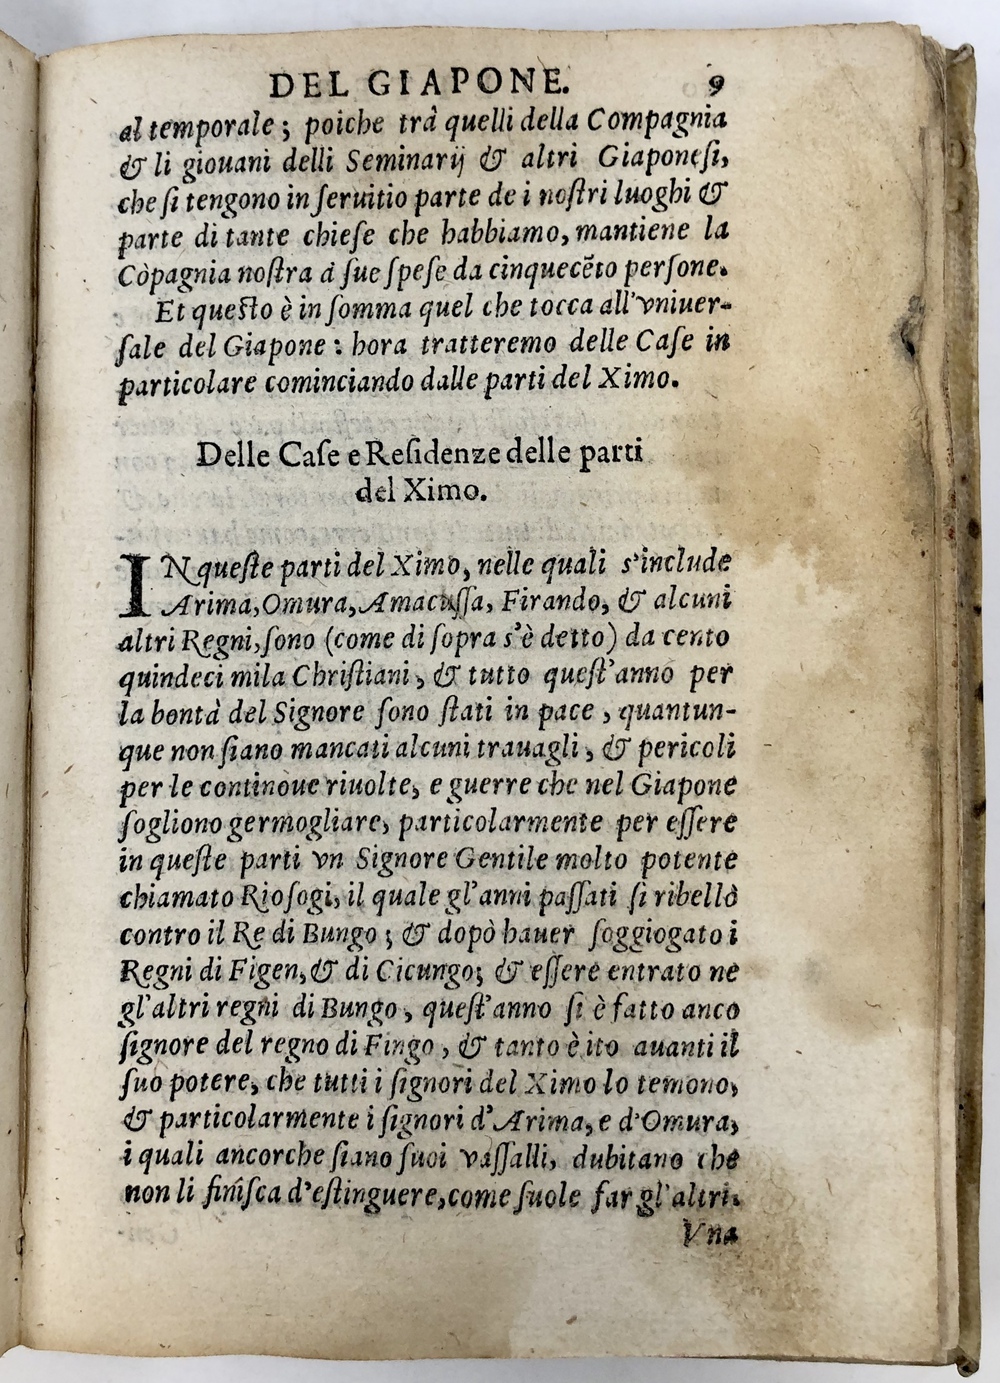 DEL GIAPONE. 9
al temporale; poiche trà quelli della Compagnia
& li giouani delli Seminarij & altri Giaponeſi,
che ſi tengono in ſeruitio parte de i noſtri luoghi &
parte di tante chieſe che habbiamo, mantiene la
Còpagnia noſtra à ſue ſpeſe da cinquecẽto perſone.
Et queſto è in ſomma quel che tocca all'vniuer-
ſale del Giapone: hora tratteremo delle Caſe in
particolare cominciando dalle parti del Ximo.
Delle Caſe e Reſidenze delle parti
del Ximo.
IN queſte parti del Ximo, nelle quali s'include
Arima, Omura, Amacuſſa, Firando, & alcuni
altri Regni, ſono (come di ſopra s'è detto) da cento
quindeci mila Chriſtiani, & tutto queſt'anno per
la bontà del Signore ſono ſtati in pace, quantun-
que non ſiano mancati alcuni trauagli, & pericoli
per le continoue riuolte, e guerre che nel Giapone
ſogliono germogliare, particolarmente per eſſere
in queſte parti vn Signore Gentile molto potente
chiamato Rioſogi, il quale gl'anni paſſati ſi ribellò
contro il Re di Bungo; & dopò hauer ſoggiogato i
Regni di Figen, & di Cicungo; & eſſere entrato ne
gl'altri regni di Bungo, queſt'anno ſi è fatto anco
ſignore del regno di Fingo, & tanto è ito auanti il
ſuo potere, che tutti i ſignori del Ximo lo temono,
& particolarmente i ſignori d'Arima, e d'Omura,
i quali ancorche ſiano ſuoi vaſſalli, dubitano che
non li finiſca d'eſtinguere, come ſuole far gl'altri.
Vna